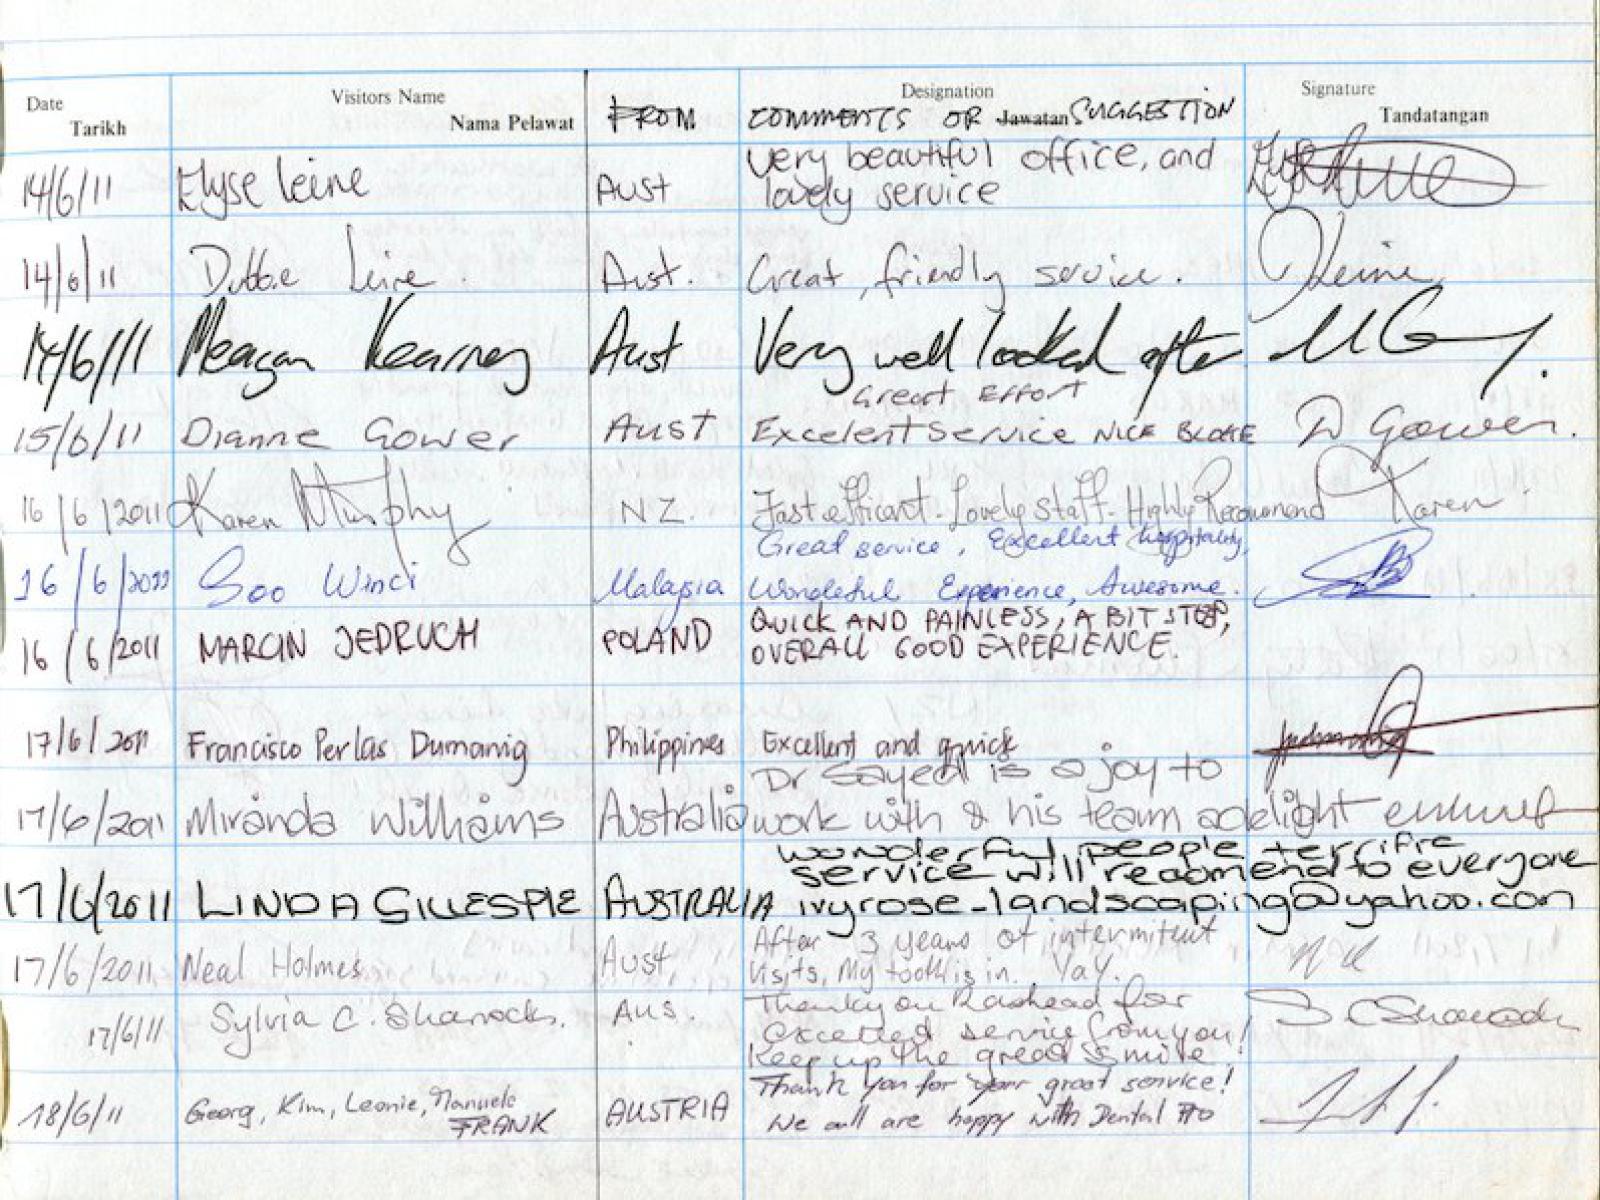 Date Visitors Name Designation Signature
Tarikh Nama Pelawat FROM COMMENTS OR Jawatan SUGGESTION Tandatangan
14/6/11 Elyse Leine Aust Very beautiful office, and
lovely service
14/6/11 Leine Aust. Great, friendly service. Leine
14/6/11 Meagan Kearney Aust Very well looked after
Great Effort
15/6/11 Dianne Gower AUST Excelent service NICE BLOKE D Gower.
16/6/2011 Karen Murphy NZ. Fast efficant. Lovely staff. Highly Recommend Karen
Great service, Excellent hospitality,
16/6/2011 Soo Winci Malaysia Wonderful Experience, Awesome.
QUICK AND PAINLESS, A BIT STEEP,
16/6/2011 MARCIN JEDRUCH POLAND OVERALL GOOD EXPERIENCE.
17/6/2011 Francisco Perlas Dumanig Philippines Excellent and quick
Dr Sayed is a joy to
17/6/2011 Miranda Williams Australia work with & his team a delight
wonderful people terrific
service will recomend to everyone
17/6/2011 LINDA GILLESPIE AUSTRALIA ivyrose_landscaping@yahoo.com
After 3 years of intermitent
17/6/2011 Neal Holmes Aust Visits, My tooth is in. Yay.
Thankyou Rashead for
17/6/11 Sylvia C. Sharrocks. Aus. excelled service from you!
Keep up the great smile
Thank you for your great service!
18/6/11 Georg, Kim, Leonie, Manuela AUSTRIA We all are happy with Dental Pro
FRANK